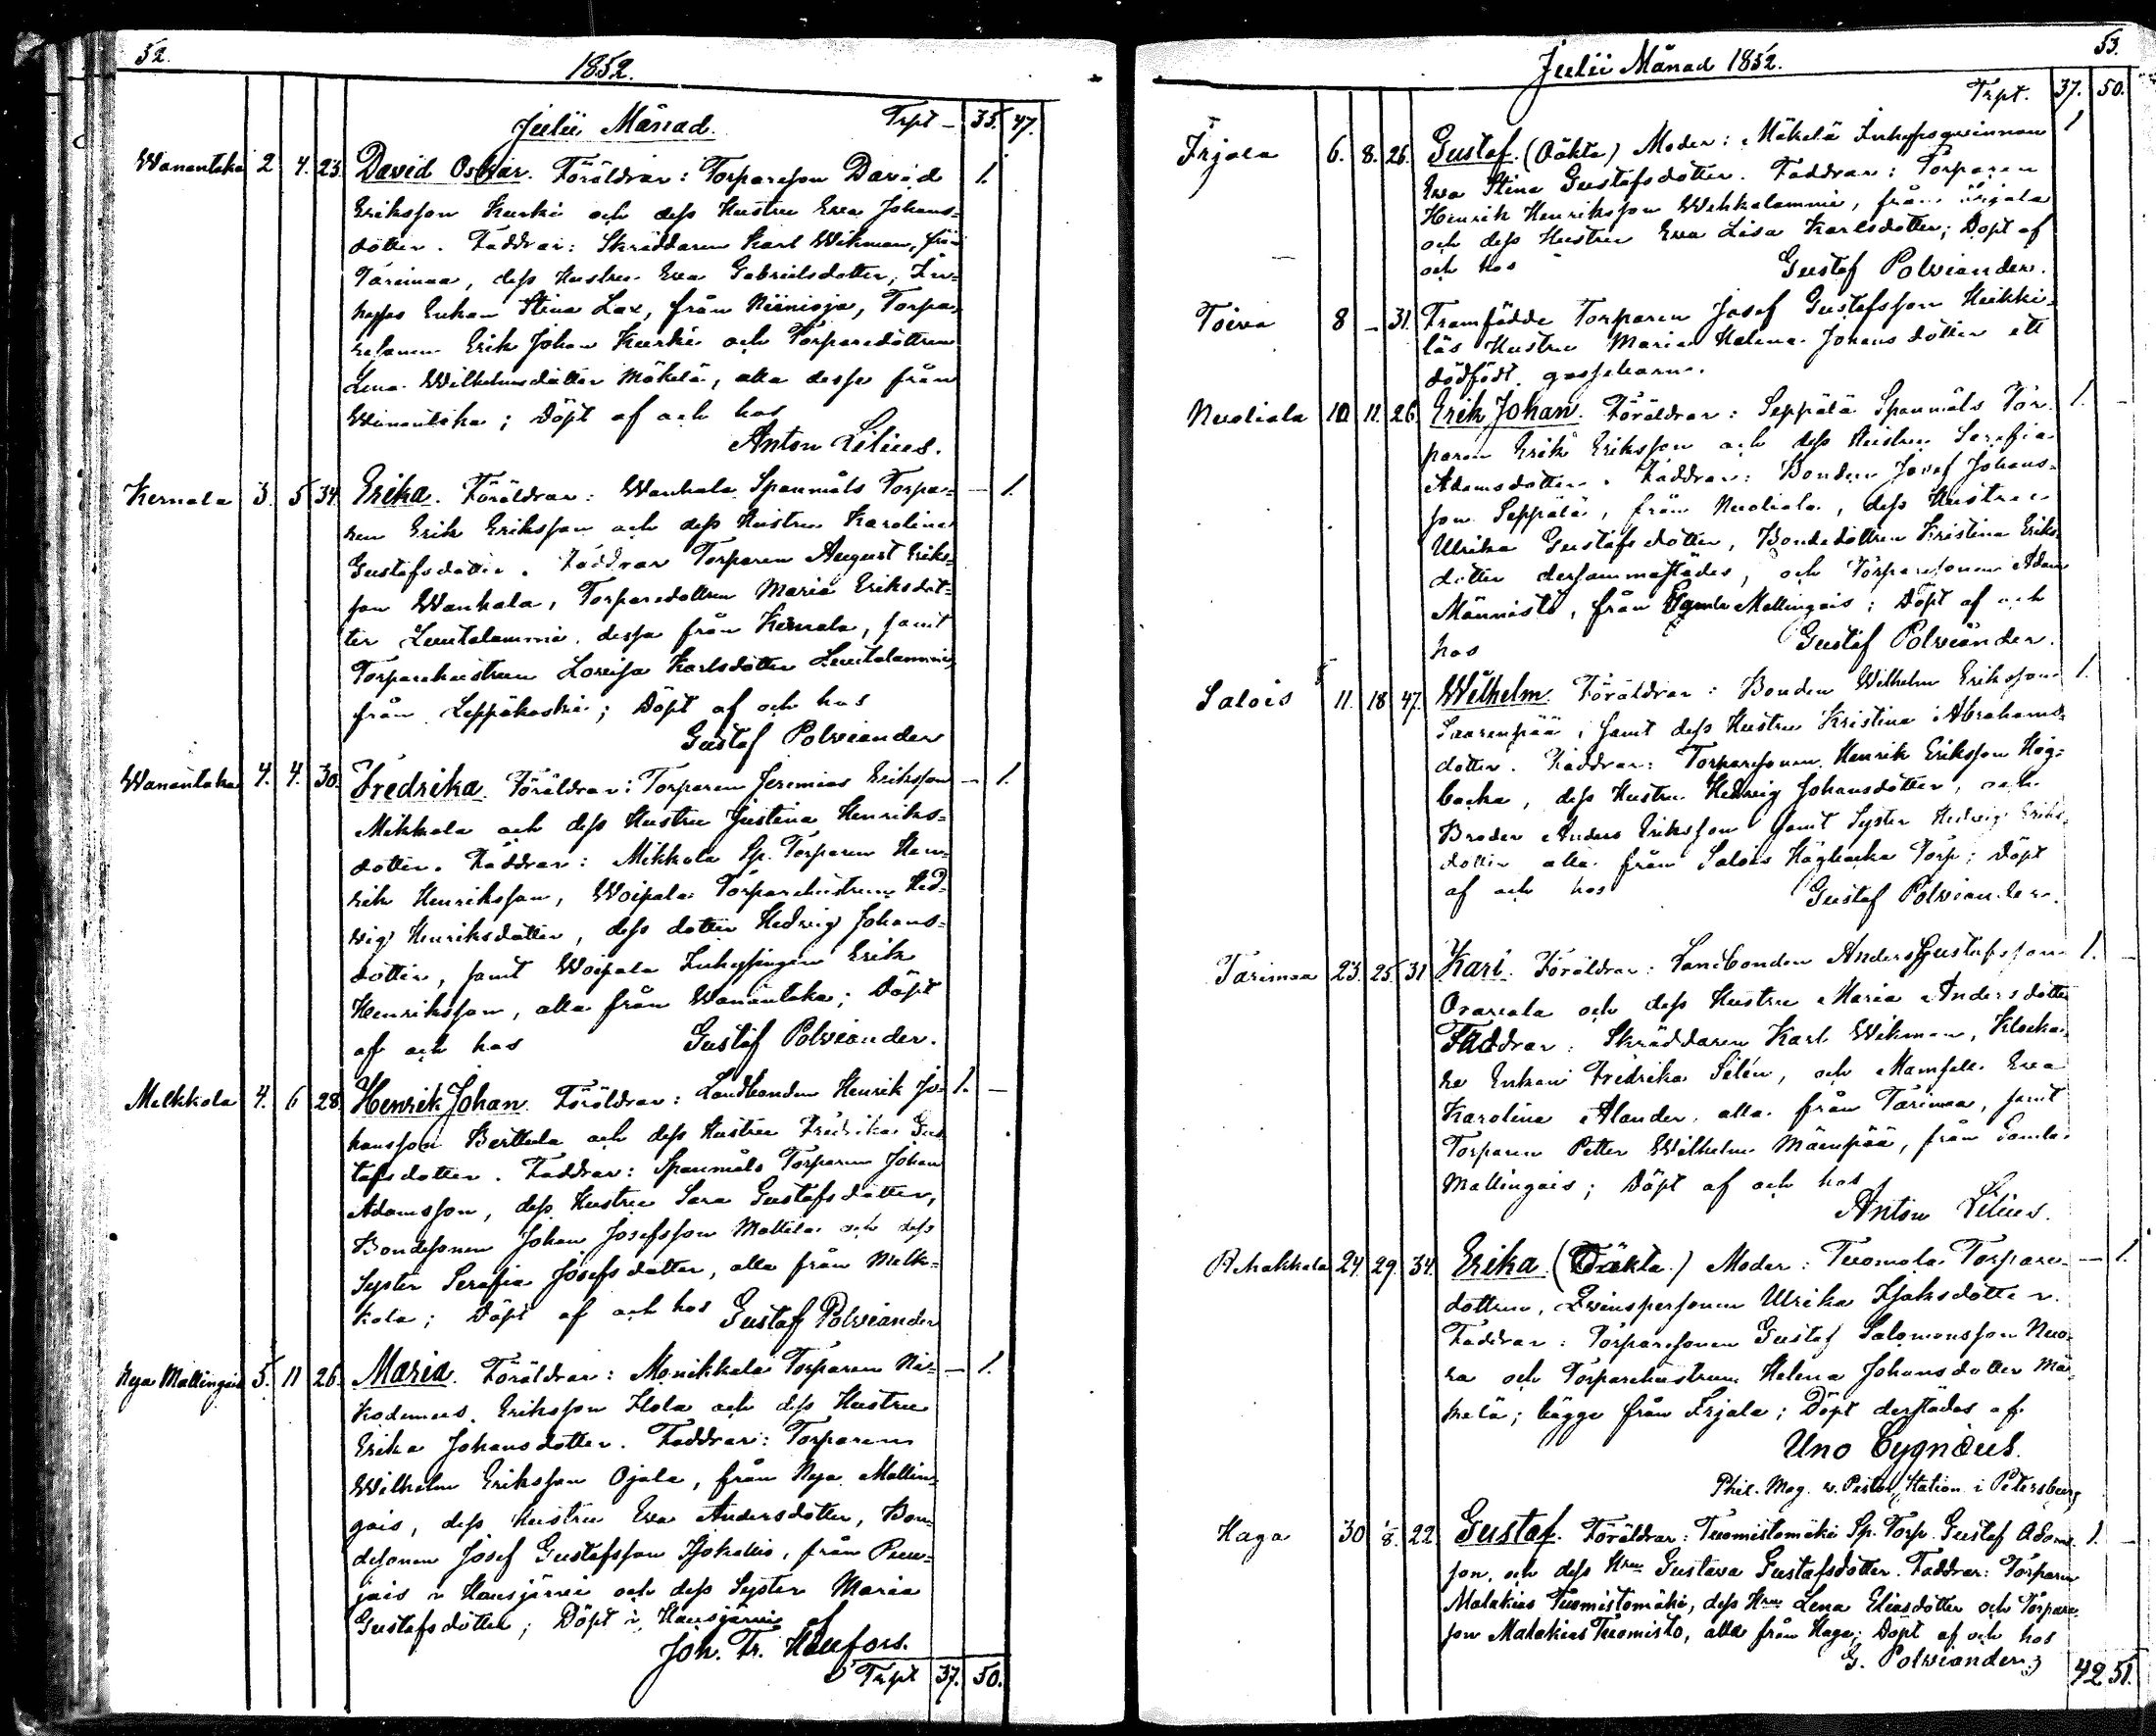 52.
1852.
Julii Månad. Trpt - 35. 47.
Wanantaka 2 4. 23. David Oskar. Föräldrar: Torparesson David 1.
Eriksson Kurki och dess Hustru Ewa Johans-
dotter. Faddrar: Skräddaren Karl Wikman, från
Tarimaa, dess Hustru Ewa Gabrielsdotter, In-
hyses Enkan Stina Lax, från Niinioja, Torpa-
resonen Erik Johan Kurki och Torparedottren
Lena Wilhelmsdotter Mäkelä, alla desse från
Wanantaka; Döpt af och hos
Anton Lilius.
Kernala 3. 5 34. Erika. Föräldrar: Wanhala Spanmåls Torpa- - 1.
ren Erik Eriksson och dess Hustru Karolina
Gustafsdotter. Faddrar Torparen August Eriks-
son Wanhala, Torparedottren Maria Eriksdot-
ter Luutalammi, dessa från Kernala, samt
Torparehustrun Lovisa Karlsdotter Luutalammi,
från Leppäkoski; Döpt af och hos
Gustaf Polviander
Wanantaka 4. 4. 30. Fredrika. Föräldrar: Torparen Jeremias Eriksson - 1.
Mikkola och dess Hustru Justina Henriks-
dotter. Faddrar: Mikkola Sp. Torparen Hen-
rik Henriksson, Woipala Torparehustrun Hed-
wig Henriksdotter, dess dotter Hedvig Johans-
dotter, samt Woipala Inhysingen Erik
Henriksson, alla från Wanantaka; Döpt
af och hos Gustaf Polviander.
Melkkola 4. 6 28. Henrik Johan. Föräldrar: Landbonden Henrik Jo- 1. -
hansson Berttula och dess Hustru Fredrika Gus-
tafsdotter. Faddrar: Spanmåls Torparen Johan
Adamsson, dess Hustru Sara Gustafsdotter,
Bondesonen Johan Josefsson Mattila och dess
Syster Serafia Josefsdotter, alla från Melk-
kola; Döpt af och hos Gustaf Polviander
Nya Mallingais 5. 11 26. Maria. Föräldrar: Monikkala Torparen Ni- - 1.
kodemus Eriksson Ilola och dess Hustru
Erika Johansdotter. Faddrar: Torparen
Wilhelm Eriksson Ojala, från Nya Mallin-
gais, dess Hustru Ewa Andersdotter, Bon-
desonen Josef Gustafsson Isokallio, från Puu-
jais i Hausjärvi och dess Syster Maria
Gustafsdotter; Döpt i Hausjärvi af
Joh. Fr. Heufors.
Trpt 37. 50.
53.
Julii Månad 1852.
Trpt. 37. 50.
Irjala 6. 8. 26. Gustaf. (Oäkta) Moder: Mäkelä Inhysesqwinnan 1
Ewa Stina Gustafsdotter. Faddrar: Torparen
Henrik Henriksson Wehkalammi, från Irjala
och dess Hustru Ewa Lisa Karlsdotter; Döpt af
och hos Gustaf Polviander.
Toiva 8 - 31. Framfödde Torparen Josef Gustafsson Heikki-
läs Hustru Maria Helena Johansdotter ett
dödfödt gossebarn.
Nuoliala 10 11. 26. Erik Johan. Föräldrar: Seppälä Spanmåls Tor- 1. -
paren Erik Eriksson och dess Hustru Serafia
Adamsdotter. Faddrar: Bonden Josef Johans-
son Seppälä, från Nuoliala, dess Hustru
Ulrika Gustafsdotter, Bondedottren Kristina Eriks-
dotter dersammastädes, och Torparesonen Adam
Männistö, från Gamla Mallingais; Döpt af och
hos Gustaf Polviander.
Salois 11. 18 47. Wilhelm. Föräldrar: Bonden Wilhelm Eriksson 1.
Saarenpää, samt dess Hustru Kristina Abrahams-
dotter. Faddrar: Torparesonen Henrik Eriksson Hög-
backa, dess Hustru Hedvig Johansdotter, och
Broder Anders Eriksson samt Syster Hedvig Eriks-
dotter alla från Salois Högbacka Torp; Döpt
af och hos Gustaf Polviander.
Tarimaa 23. 25. 31 Karl. Föräldrar: Landbonden Anders Gustafsson 1. -
Oravala och dess Hustru Maria Andersdotter
Faddrar: Skräddaren Karl Wikman, Klocka-
re Enkan Fredrika Silén, och Mamsell Ewa
Karolina Alander, alla från Tarimaa, samt
Torparen Petter Wilhelm Mäenpää, från Gamla
Mallingais; Döpt af och hos
Anton Lilius.
Rehakkala 24. 29. 34. Erika. (Oäkta.) Moder: Tuomola Torpare- - 1.
dottren, Qvinspersonen Ulrika Isaksdotter.
Faddrar: Torparesonen Gustaf Salomonsson Nuo-
ra och Torparehustrun Helena Johansdotter Mä-
kelä; bägge från Irjala; Döpt derstädes af
Uno Cygnæus.
Phil. Mag. v. Pastor, Station i Petersburg
Haga 30 1/8. 22. Gustaf. Föräldrar: Tuomistomäki Sp. Torp. Gustaf Adams- 1. -
son, och dess Hru Gustava Gustafsdotter. Faddrar: Torparen
Malakias Tuomistomäki, dess Hru Lena Eliasdotter och Torpare-
son Malakias Tuomisto, alla från Haga; Döpt af och hos
G. Polviander.
42 51.